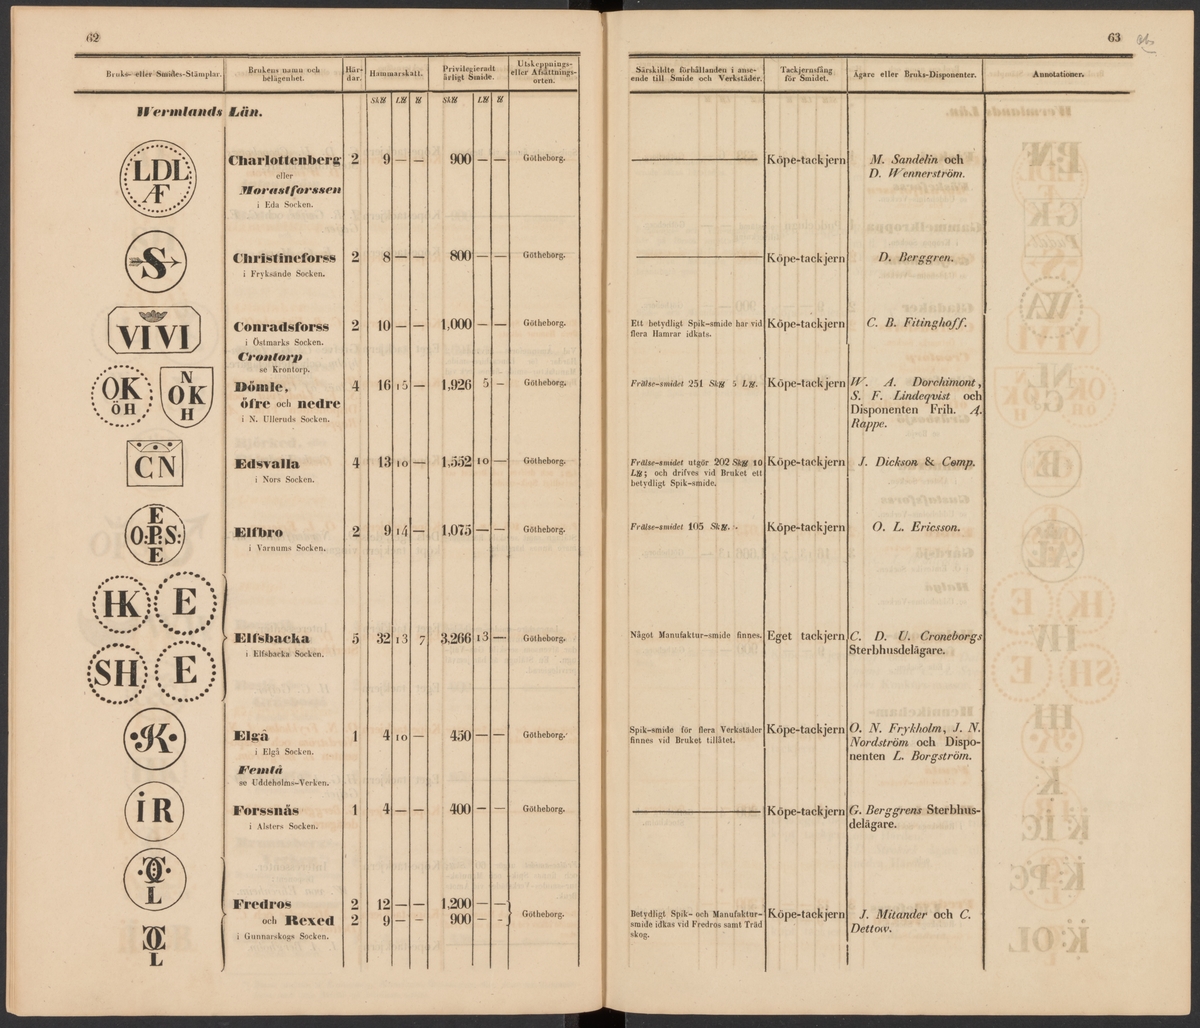 62
Bruks- eller Smides-Stämplar.
Brukens namn och
belägenhet.
Här-
dar.
Hammarskatt.
Privilegieradt
årligt Smide.
Utskeppnings-
eller Afsättnings-
orten.
Wermlands Län.
LDL
Charlottenberg 2 9 — — 900 — — Götheborg.
eller
Morastforssen
i Eda Socken.
S
Christineforss 2 8 — — 800 — — Götheborg.
i Fryksände Socken.
VIVI
Conradsforss 2 10 — — 1,000 — — Götheborg.
i Östmarks Socken.
Crontorp
se Krontorp.
OK
ÖH
N
OK
H
Dömle, 4 16 15 — 1,926 5 — Götheborg.
öfre och nedre
i N. Ulleruds Socken.
CN
Edsvalla 4 13 10 — 1,552 10 — Götheborg.
i Nors Socken.
E
O:P.S:
E
Elfbro 2 9 14 — 1,075 — — Götheborg.
i Varnums Socken.
HK E
SH E
Elfsbacka 5 32 13 7 3,266 13 — Götheborg.
i Elfsbacka Socken.
K
Elgå 1 4 10 — 450 — — Götheborg.
i Elgå Socken.
Femtå
se Uddeholms-Verken.
iR
Forssnås 1 4 — — 400 — — Götheborg.
i Alsters Socken.
L
L
Fredros 2 12 — — 1,200 — —
och Rexed 2 9 — — 900 — - Götheborg.
i Gunnarskogs Socken.
63
Särskildte förhållanden i anse-
ende till Smide och Verkstäder.
Tackjernsfång
för Smidet.
Ägare eller Bruks-Disponenter.
Annotationer.
Köpe-tackjern M. Sandelin och
D. Wennerström.
Köpe-tackjern D. Berggren.
Ett betydligt Spik-smide har vid Köpe-tackjern C. B. Fitinghoff.
flera Hamrar idkats.
Frälse-smidet 251 Sk℔ 5 L℔. Köpe-tackjern W. A. Dorchimont,
S. F. Lindeqvist och
Disponenten Frih. A.
Rappe.
Frälse-smidet utgör 202 Sk℔ 10 Köpe-tackjern J. Dickson & Comp.
L℔; och drifves vid Bruket ett
betydligt Spik-smide.
Frälse-smidet 105 Sk℔. Köpe-tackjern O. L. Ericsson.
Något Manufaktur-smide finnes. Eget tackjern C. D. U. Croneborgs
Sterbhusdelägare.
Spik-smide för flera Verkstäder Köpe-tackjern O. N. Frykholm, J. N.
finnes vid Bruket tillåtet. Nordström och Dispo-
nenten L. Borgström.
Köpe-tackjern G. Berggrens Sterbhus-
delägare.
Betydligt Spik- och Manufaktur- Köpe-tackjern J. Mitander och C.
smide idkas vid Fredros samt Träd Dettow.
skog.